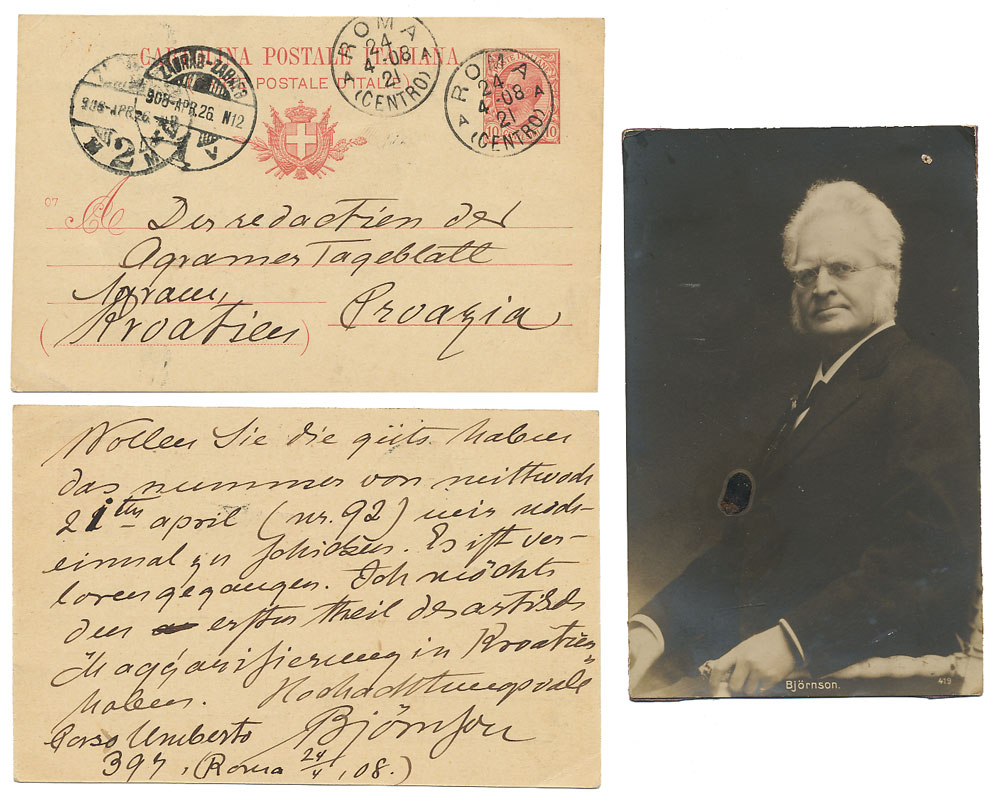 CARTOLINA POSTALE ITALIANA
POSTALE D'ITALIE
ROMA
24
4-08
21
(CENTRO)
A A
ROMA
24
4-08
21
(CENTRO)
A A
ZAGREB-ZÁGRÁB
908-APR.26. N12
1
908-APR.26.
2
POSTE ITALIANE
10 10
07
A Der redactien der
Agramer Tageblatt
Agram,
(Kroatien) Croazia
Wollen Sie die güte haben
das nummer von mittwoch
21ten april (nr. 92) mir noch
einmal zu schicken. Es ist ver-
loren gegangen. Ich möchte
den ersten theil des artikels
"Magyarisierung in Kroatien"
haben. Hochachtungsvoll
Corso Umberto Björnson
397, (Roma 24/4, 08.)
Björnson.
419